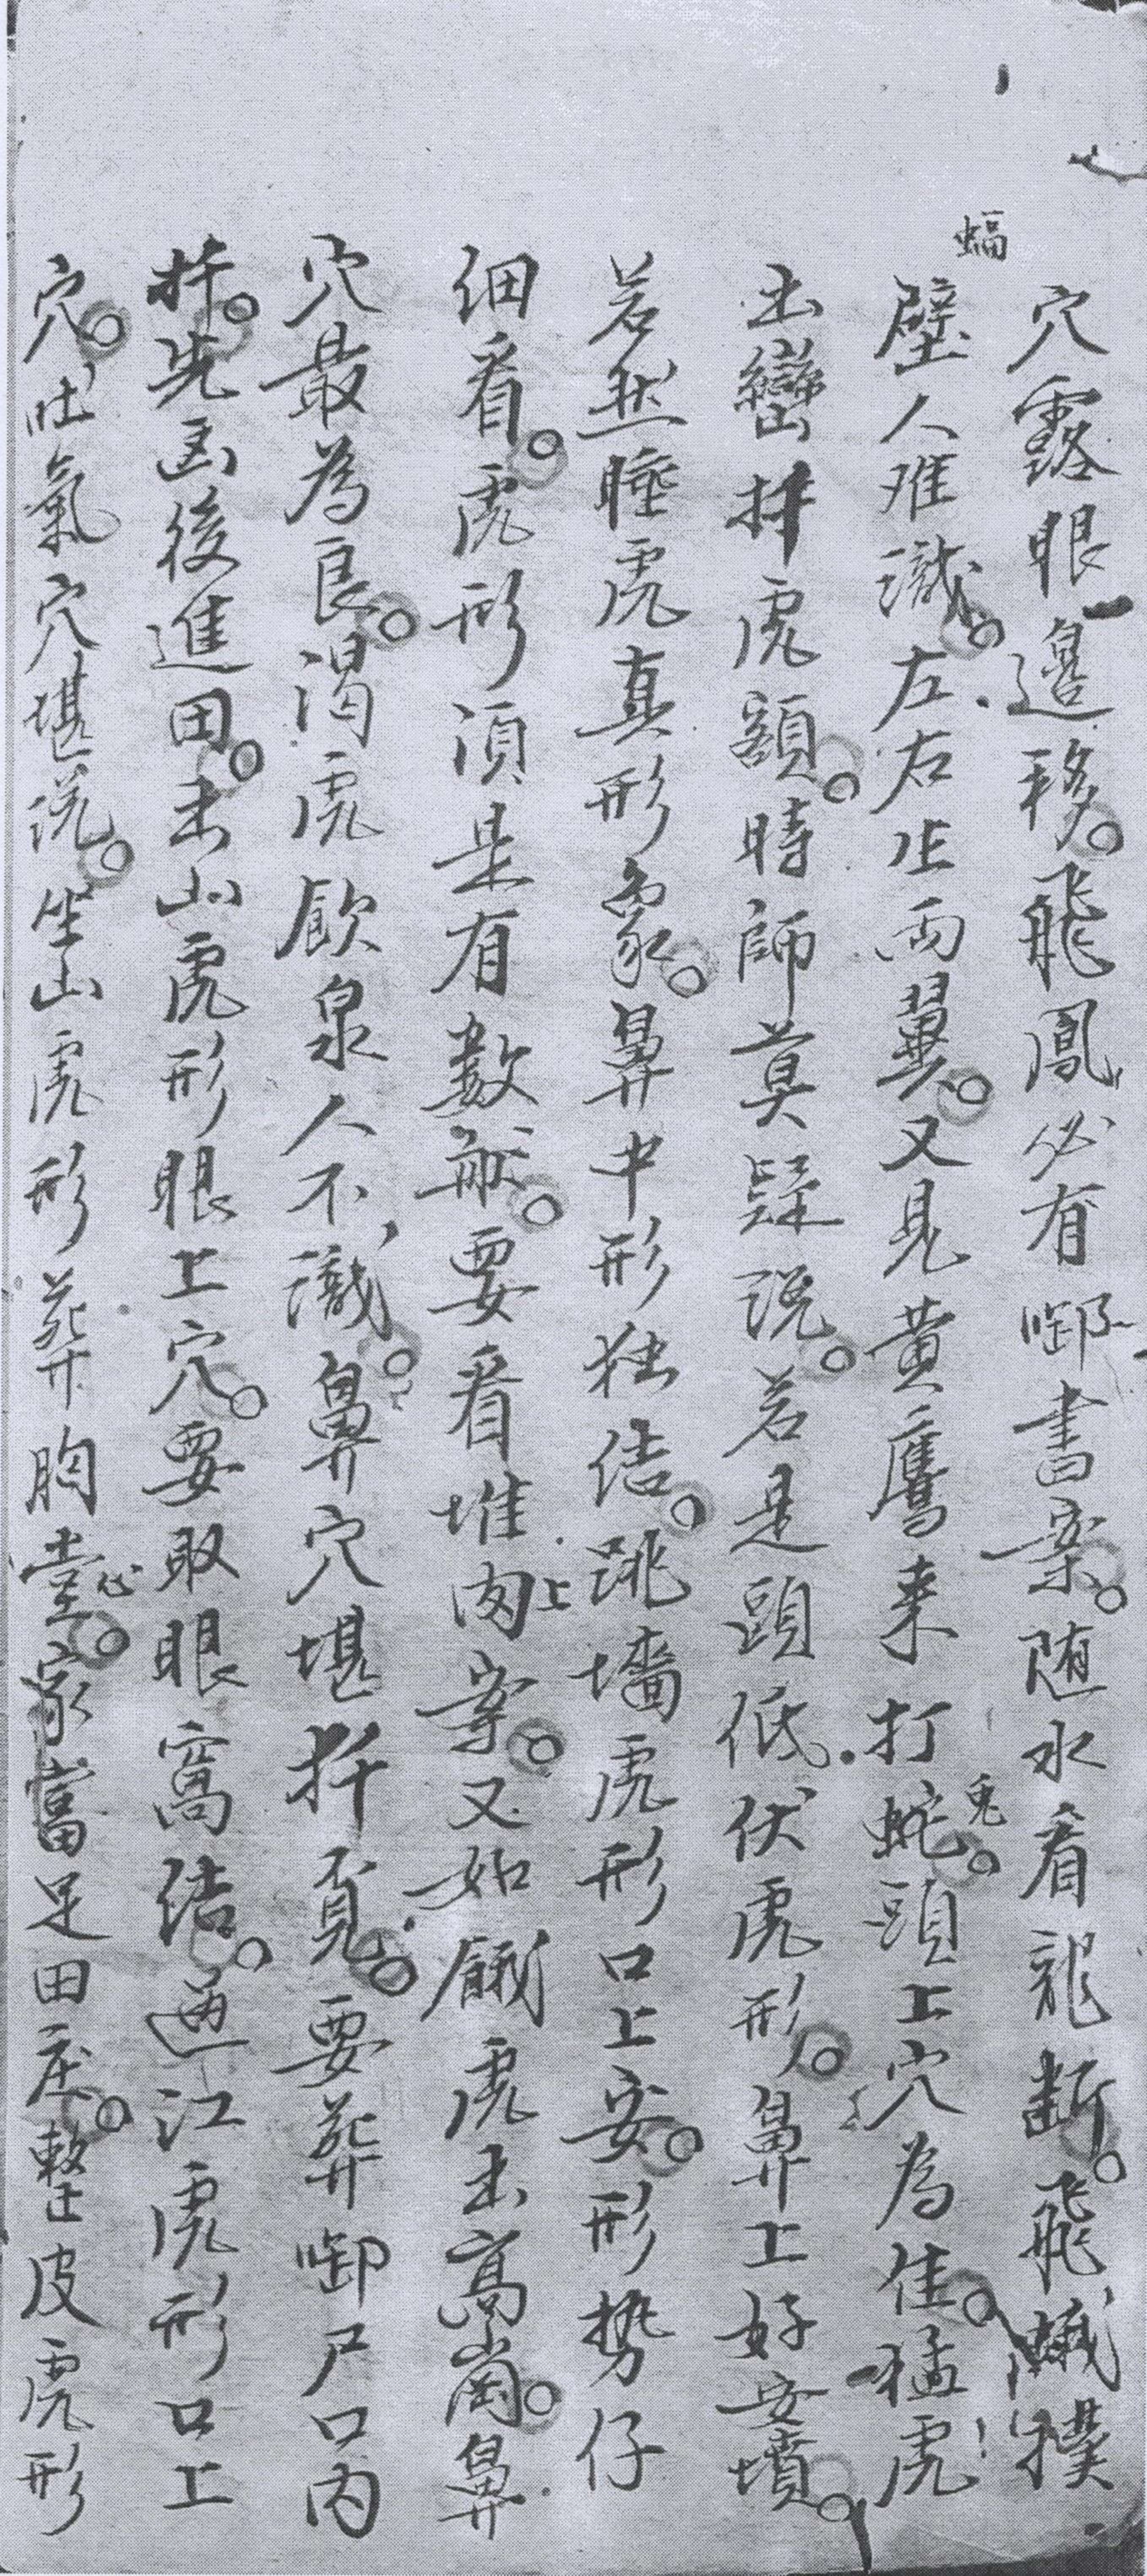 穴露眼邊移。飛鳳必有啣書案。随水看龍断。飛蛾撲
蝠
壁人难識。左右生両翼。又見黄鷹来打蛇。頭上穴為佳。猛虎
兎
出巒扦虎額。時師莫疑说。若是頭低伏虎形。鼻上好安墳。
若然睡虎真形象。鼻中形独结。跳墻虎形口上安。形势仔
细看。虎形須是有數般。要看堆肉案。又如餓虎出高崗。鼻
上
穴最為良。渴虎飲泉人不識。鼻穴堪扦覓。要葬啣尸口内
扦。先凶後進田。出山虎形眼上穴。要取眼窩结。過江虎形口上
穴。吐氣穴堪说。坐山虎形葬胸堂。家當足田庄。整皮虎形
心